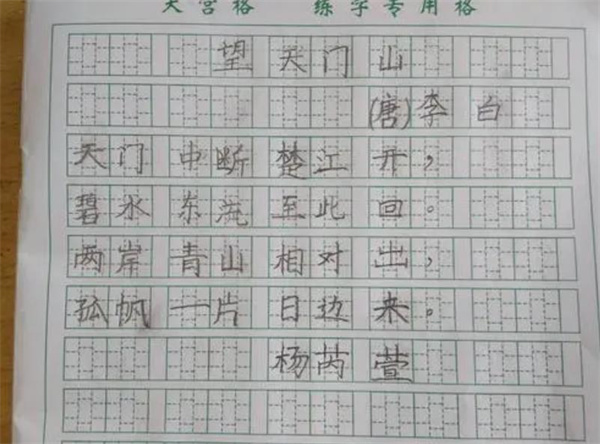 天宫格 练字专用格
望天门山
(唐)李白
天门中断楚江开，
碧水东流至此回。
两岸青山相对出，
孤帆一片日边来。
杨芮萱